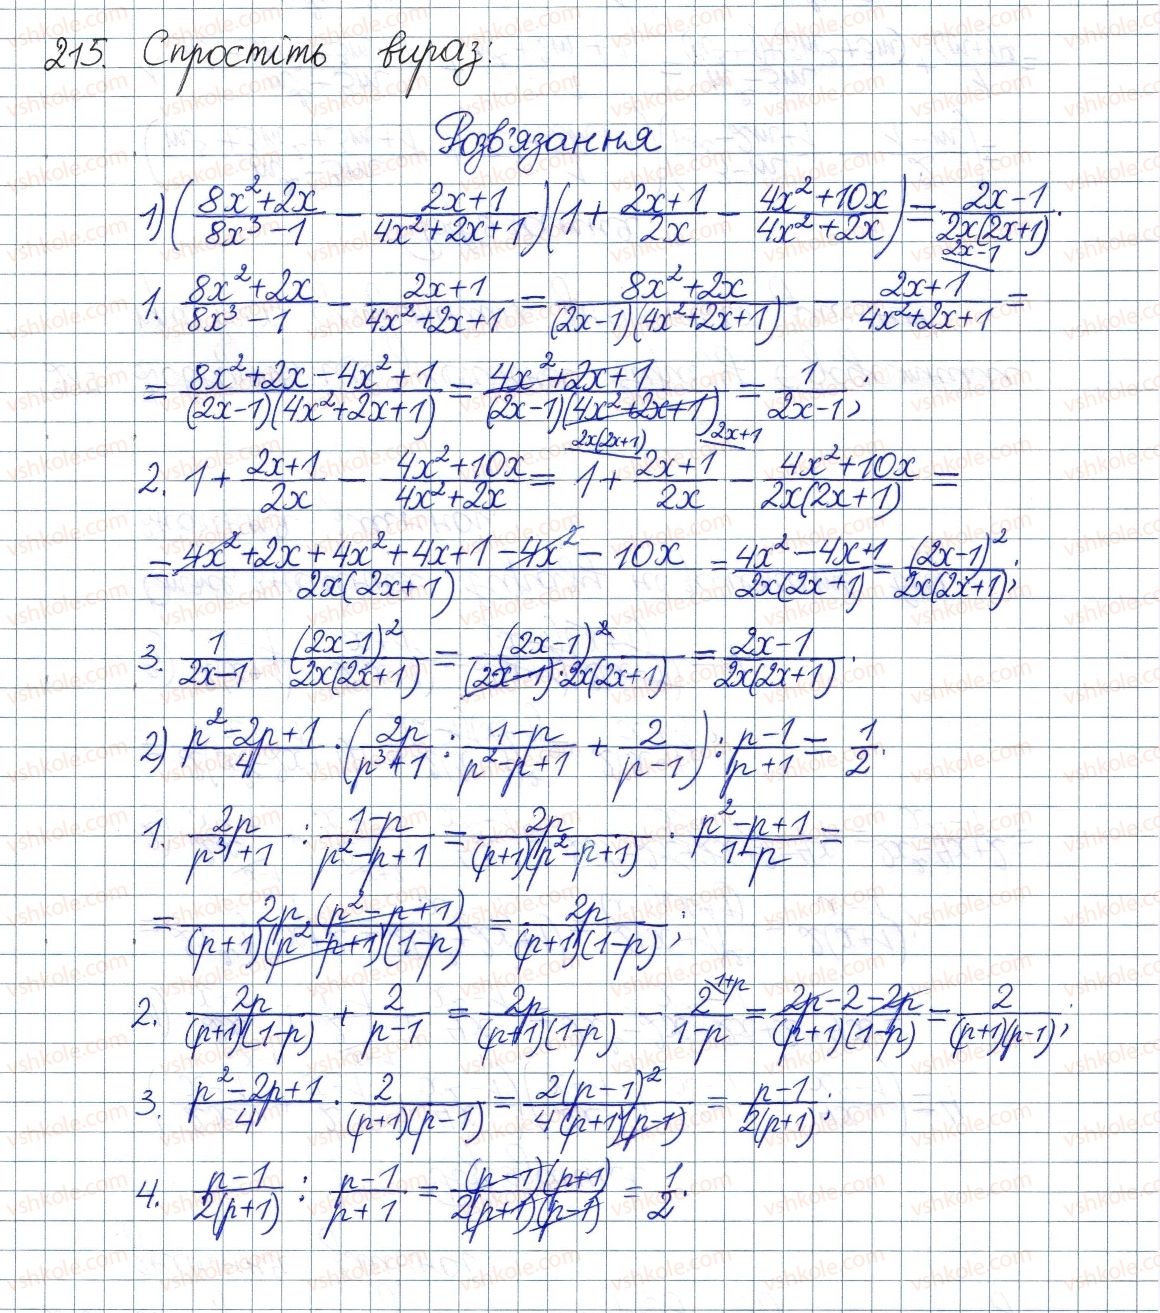 215. Спростіть вираз:
Розв'язання
1) ((8x²+2x)/(8x³−1) − (2x+1)/(4x²+2x+1)) (1 + (2x+1)/(2x) − (4x²+10x)/(4x²+2x)) = (2x−1)/(2x(2x+1)).
1. (8x²+2x)/(8x³−1) − (2x+1)/(4x²+2x+1) = (8x²+2x)/((2x−1)(4x²+2x+1)) − (2x+1)/(4x²+2x+1) \2x−1 =
= (8x²+2x−4x²+1)/((2x−1)(4x²+2x+1)) = (4x²+2x+1)/((2x−1)(4x²+2x+1)) = 1/(2x−1);
2. 1 + (2x+1)/(2x) − (4x²+10x)/(4x²+2x) = 1 \2x(2x+1) + (2x+1)/(2x) \2x+1 − (4x²+10x)/(2x(2x+1)) =
= (4x²+2x+4x²+4x+1−4x²−10x)/(2x(2x+1)) = (4x²−4x+1)/(2x(2x+1)) = (2x−1)²/(2x(2x+1));
3. 1/(2x−1) · (2x−1)²/(2x(2x+1)) = (2x−1)²/((2x−1)·2x(2x+1)) = (2x−1)/(2x(2x+1)).
2) (p²−2p+1)/4 · (2p/(p³+1) : (1−p)/(p²−p+1) + 2/(p−1)) : (p−1)/(p+1) = 1/2.
1. 2p/(p³+1) : (1−p)/(p²−p+1) = 2p/((p+1)(p²−p+1)) · (p²−p+1)/(1−p) =
= 2p(p²−p+1)/((p+1)(p²−p+1)(1−p)) = 2p/((p+1)(1−p));
2. 2p/((p+1)(1−p)) + 2/(p−1) = 2p/((p+1)(1−p)) − 2/(1−p) \1+p = (2p−2−2p)/((p+1)(1−p)) = 2/((p+1)(p−1));
3. (p²−2p+1)/4 · 2/((p+1)(p−1)) = 2(p−1)²/(4(p+1)(p−1)) = (p−1)/(2(p+1));
4. (p−1)/(2(p+1)) : (p−1)/(p+1) = (p−1)(p+1)/(2(p+1)(p−1)) = 1/2.